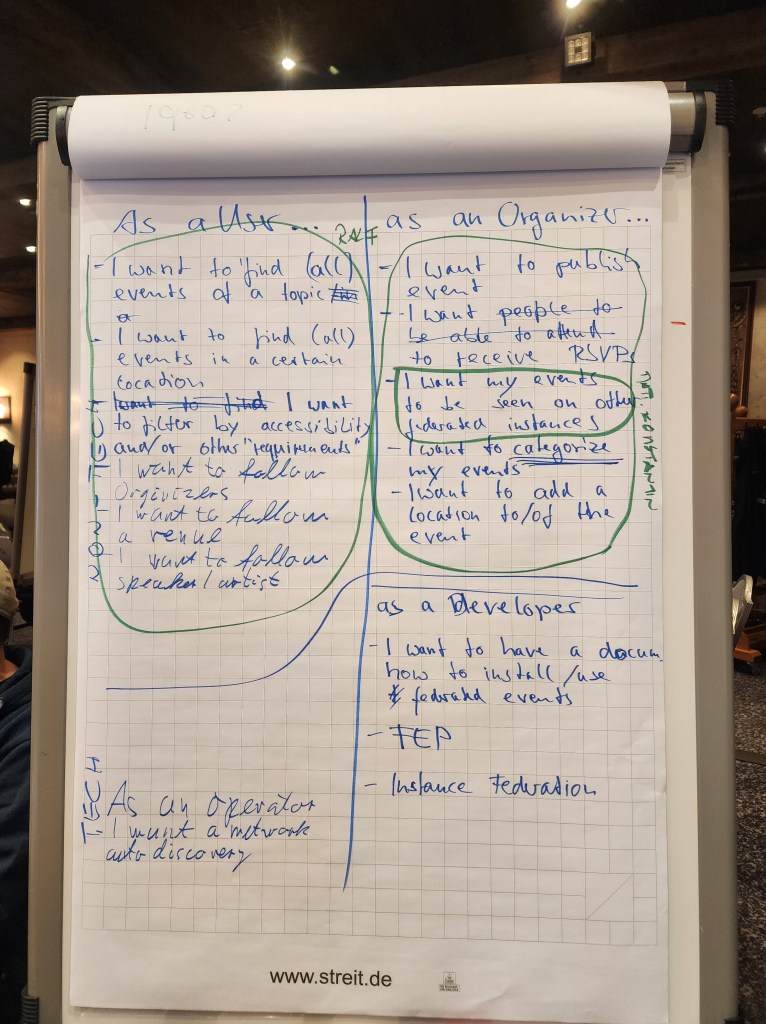 As a User...
RALF
- I want to find (all)
events of a topic
or
- I want to find (all)
events in a certain
location
- I want to find I want
to filter by accessibility
and/or other "requirements"
- I want to follow
Orginizers
- I want to follow
a venue
- I want to follow
speaker/artist
as an Organizer...
- I want to publish
event
- I want people to
be able to attend
to receive RSVPs
- I want my events
to be seen on other
federated instances
- I want to categorize
my events
- I want to add a
location to/of the
event
as a Developer
- I want to have a docum.
how to install/use
federatd events
- FEP
- Instance Federation
TECH
As an operator
- I want a network
auto discovery
www.streit.de